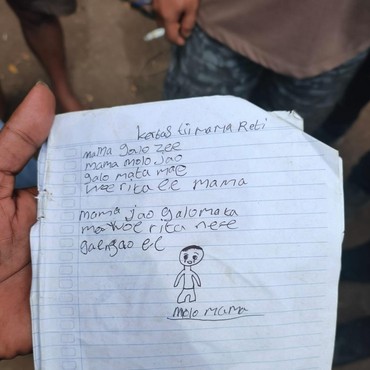 kertas tii mama Reti
mama galo zee
mama molo jao
galo mata mae
woe rita ee mama
mama jao galo mata
mae woe rita nese
gae ngao ee
molo mama